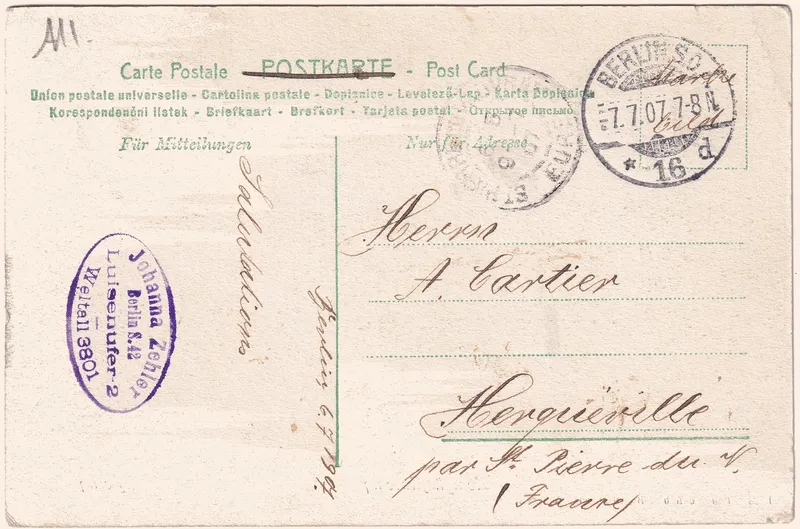 Carte Postale - POSTKARTE - Post Card
Union postale universelle - Cartolina postale - Dopisnice - Levelező-Lap - Karta Dopisnica
Korespondenční lístek - Briefkaart - Brefkort - Tarjeta postal - Открытое письмо
Für Mitteilungen
Nur für Adresse
BERLIN S.O.
7.7.07.7-8N.
* 16 d
Marke
Salutations
Berlin, 6 7 1907.
Johanna Zehler
Berlin S.42
Luisenufer 2
Weltall 3801
Herrn
A. Cartier
Herquéville
par St. Pierre du V.
(France)